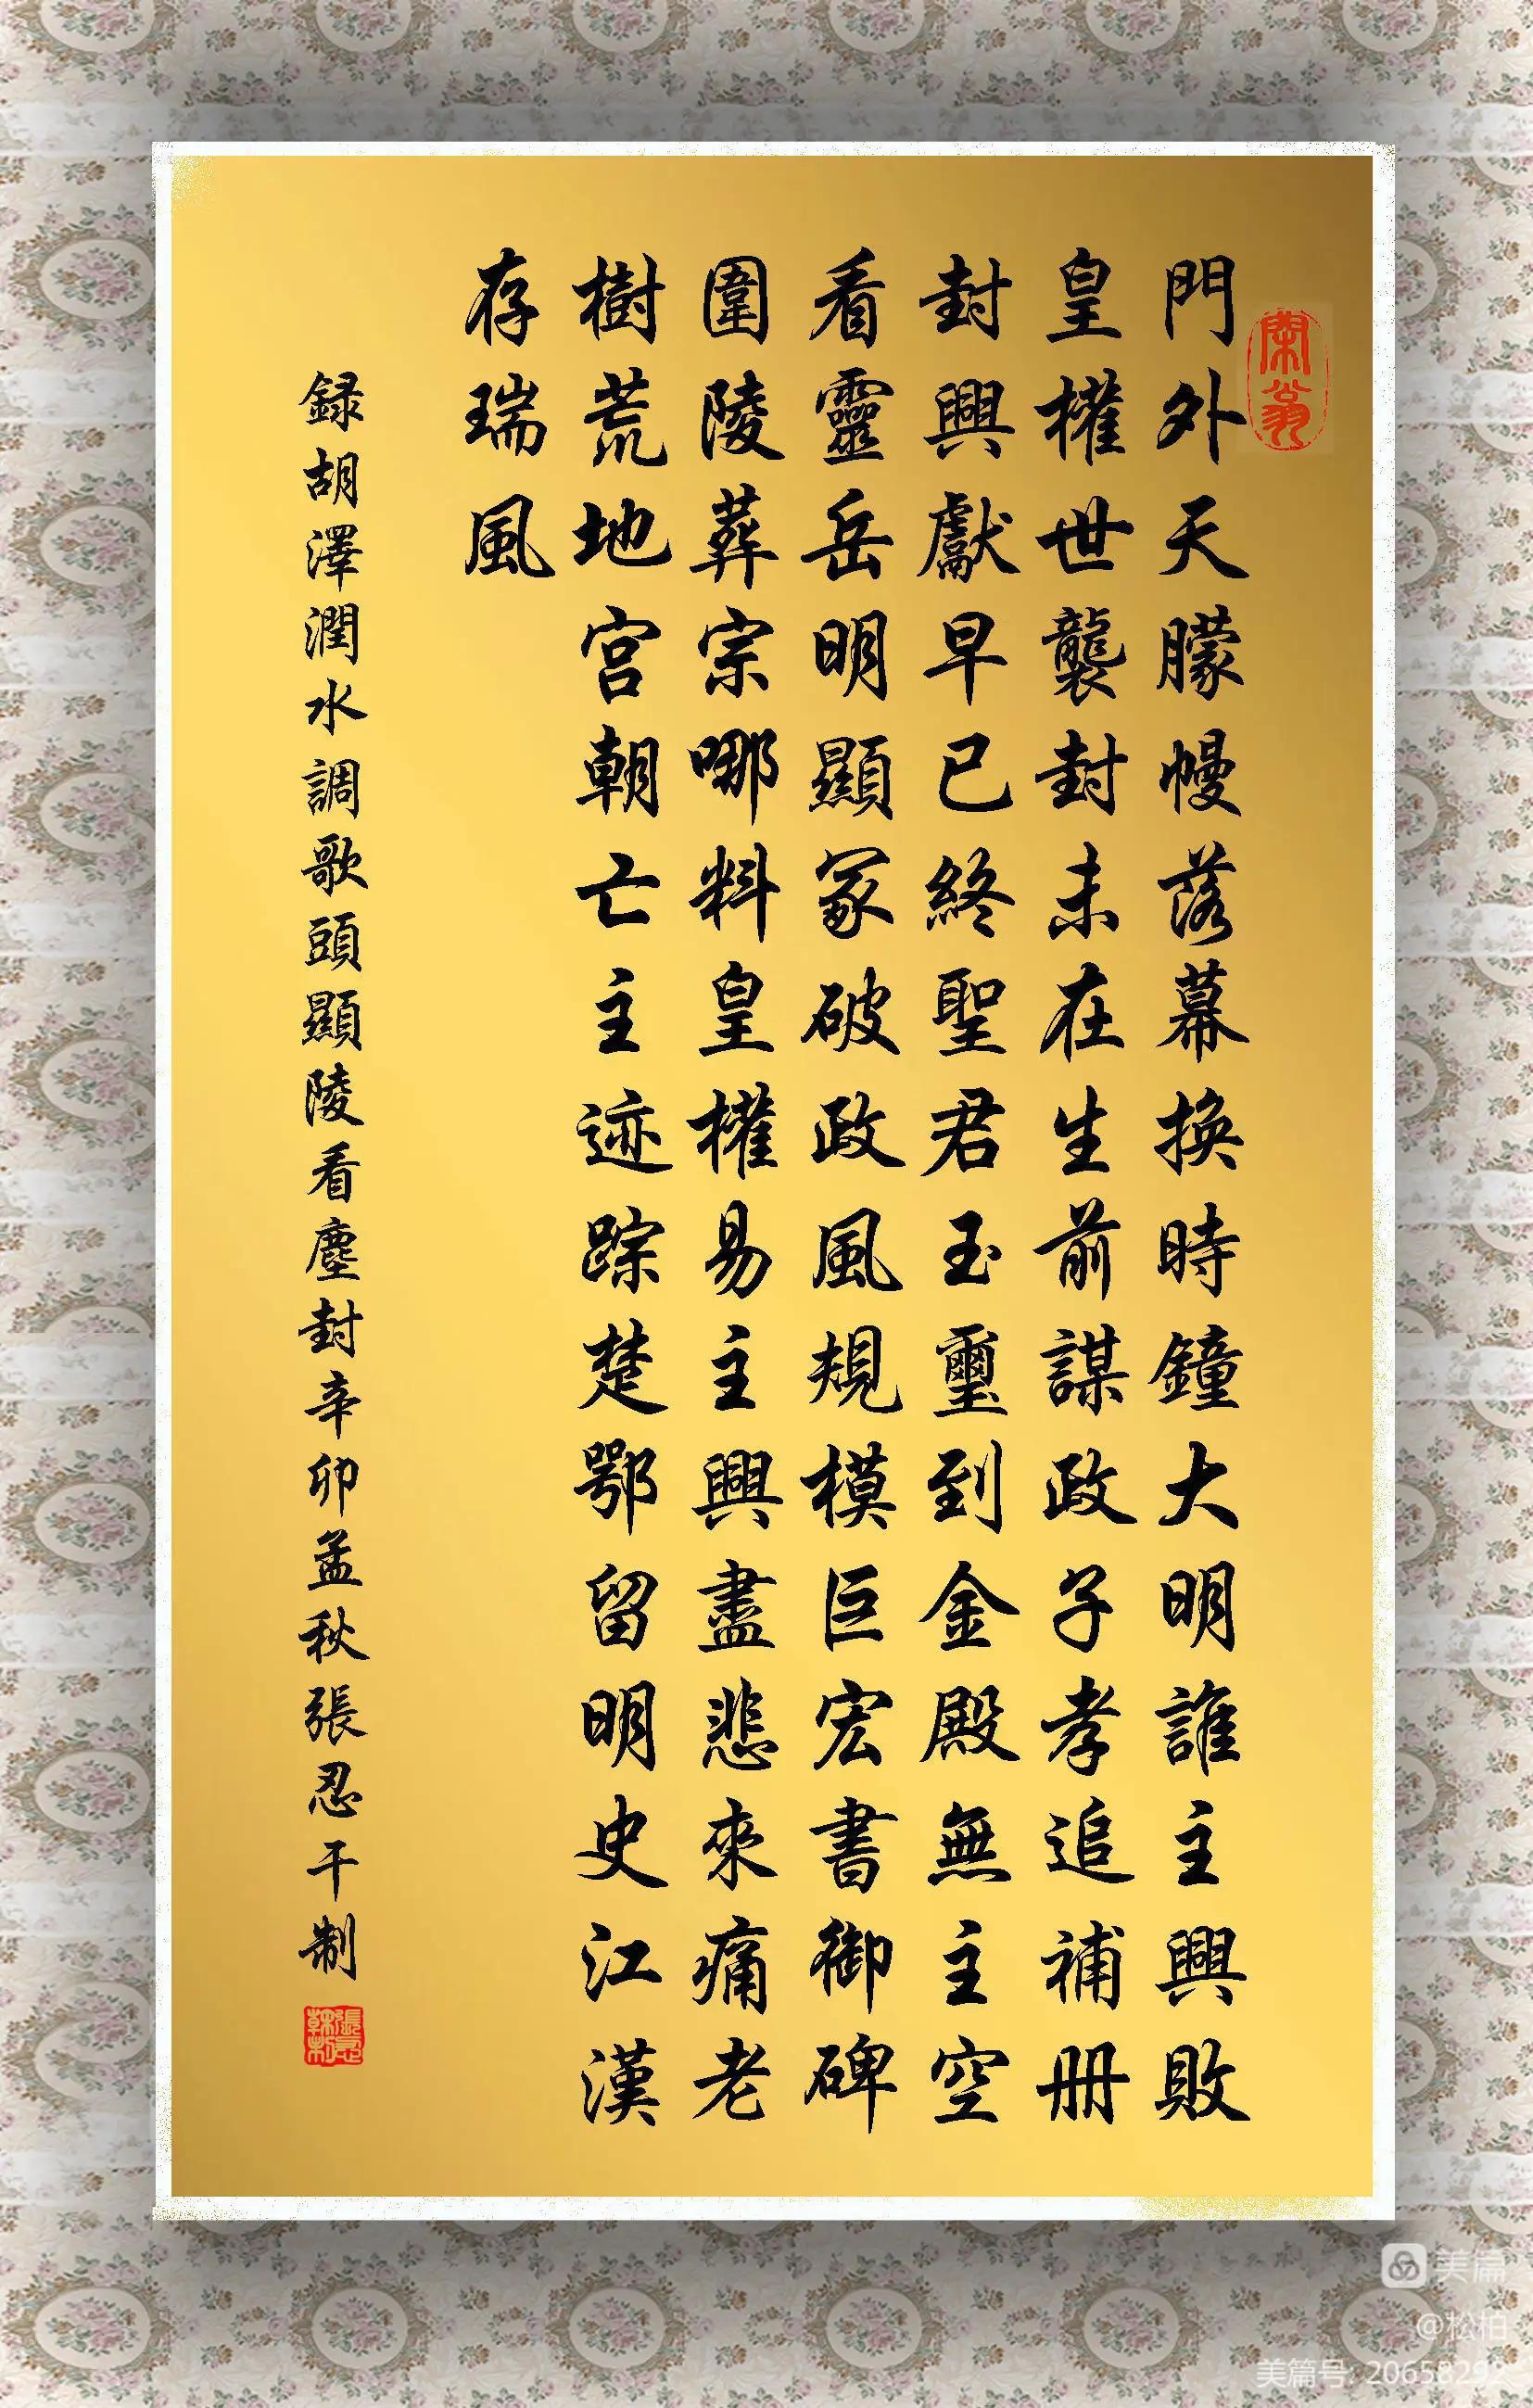 門外天朦幔落幕換時鐘大明誰主興敗
皇權世襲封未在生前謀政子孝追補册
封興獻早已終聖君玉璽到金殿無主空
看靈岳明顯冢破政風規模巨宏書御碑
圍陵葬宗哪料皇權易主興盡悲來痛老
樹荒地宮朝亡主迹踪楚鄂留明史江漢
存瑞風
録胡澤潤水調歌頭顯陵看塵封辛卯孟秋張忍干制
美篇
@松柏